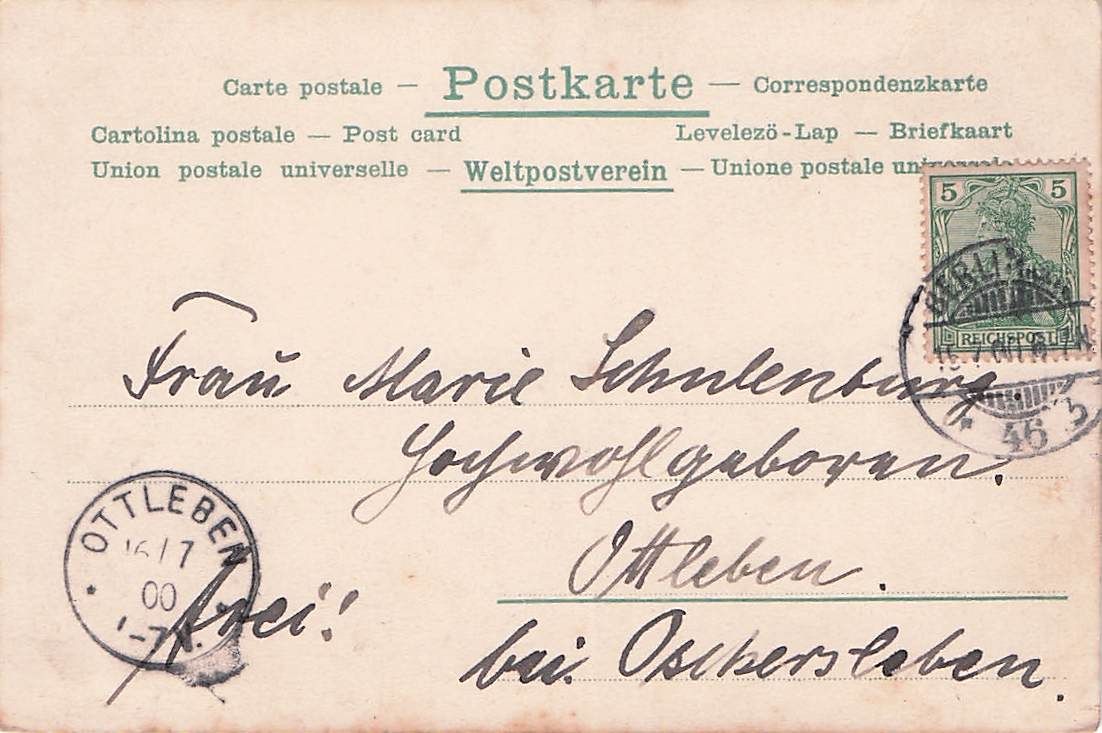 Carte postale — Postkarte — Correspondenzkarte
Cartolina postale — Post card Levelezö-Lap — Briefkaart
Union postale universelle — Weltpostverein — Unione postale
5 5
REICHSPOST
BERLIN
46
Frau Marie Schulenburg.
Hochwohlgeboren.
Ottleben.
bei Oschersleben.
frei!
OTTLEBEN
16/7
00